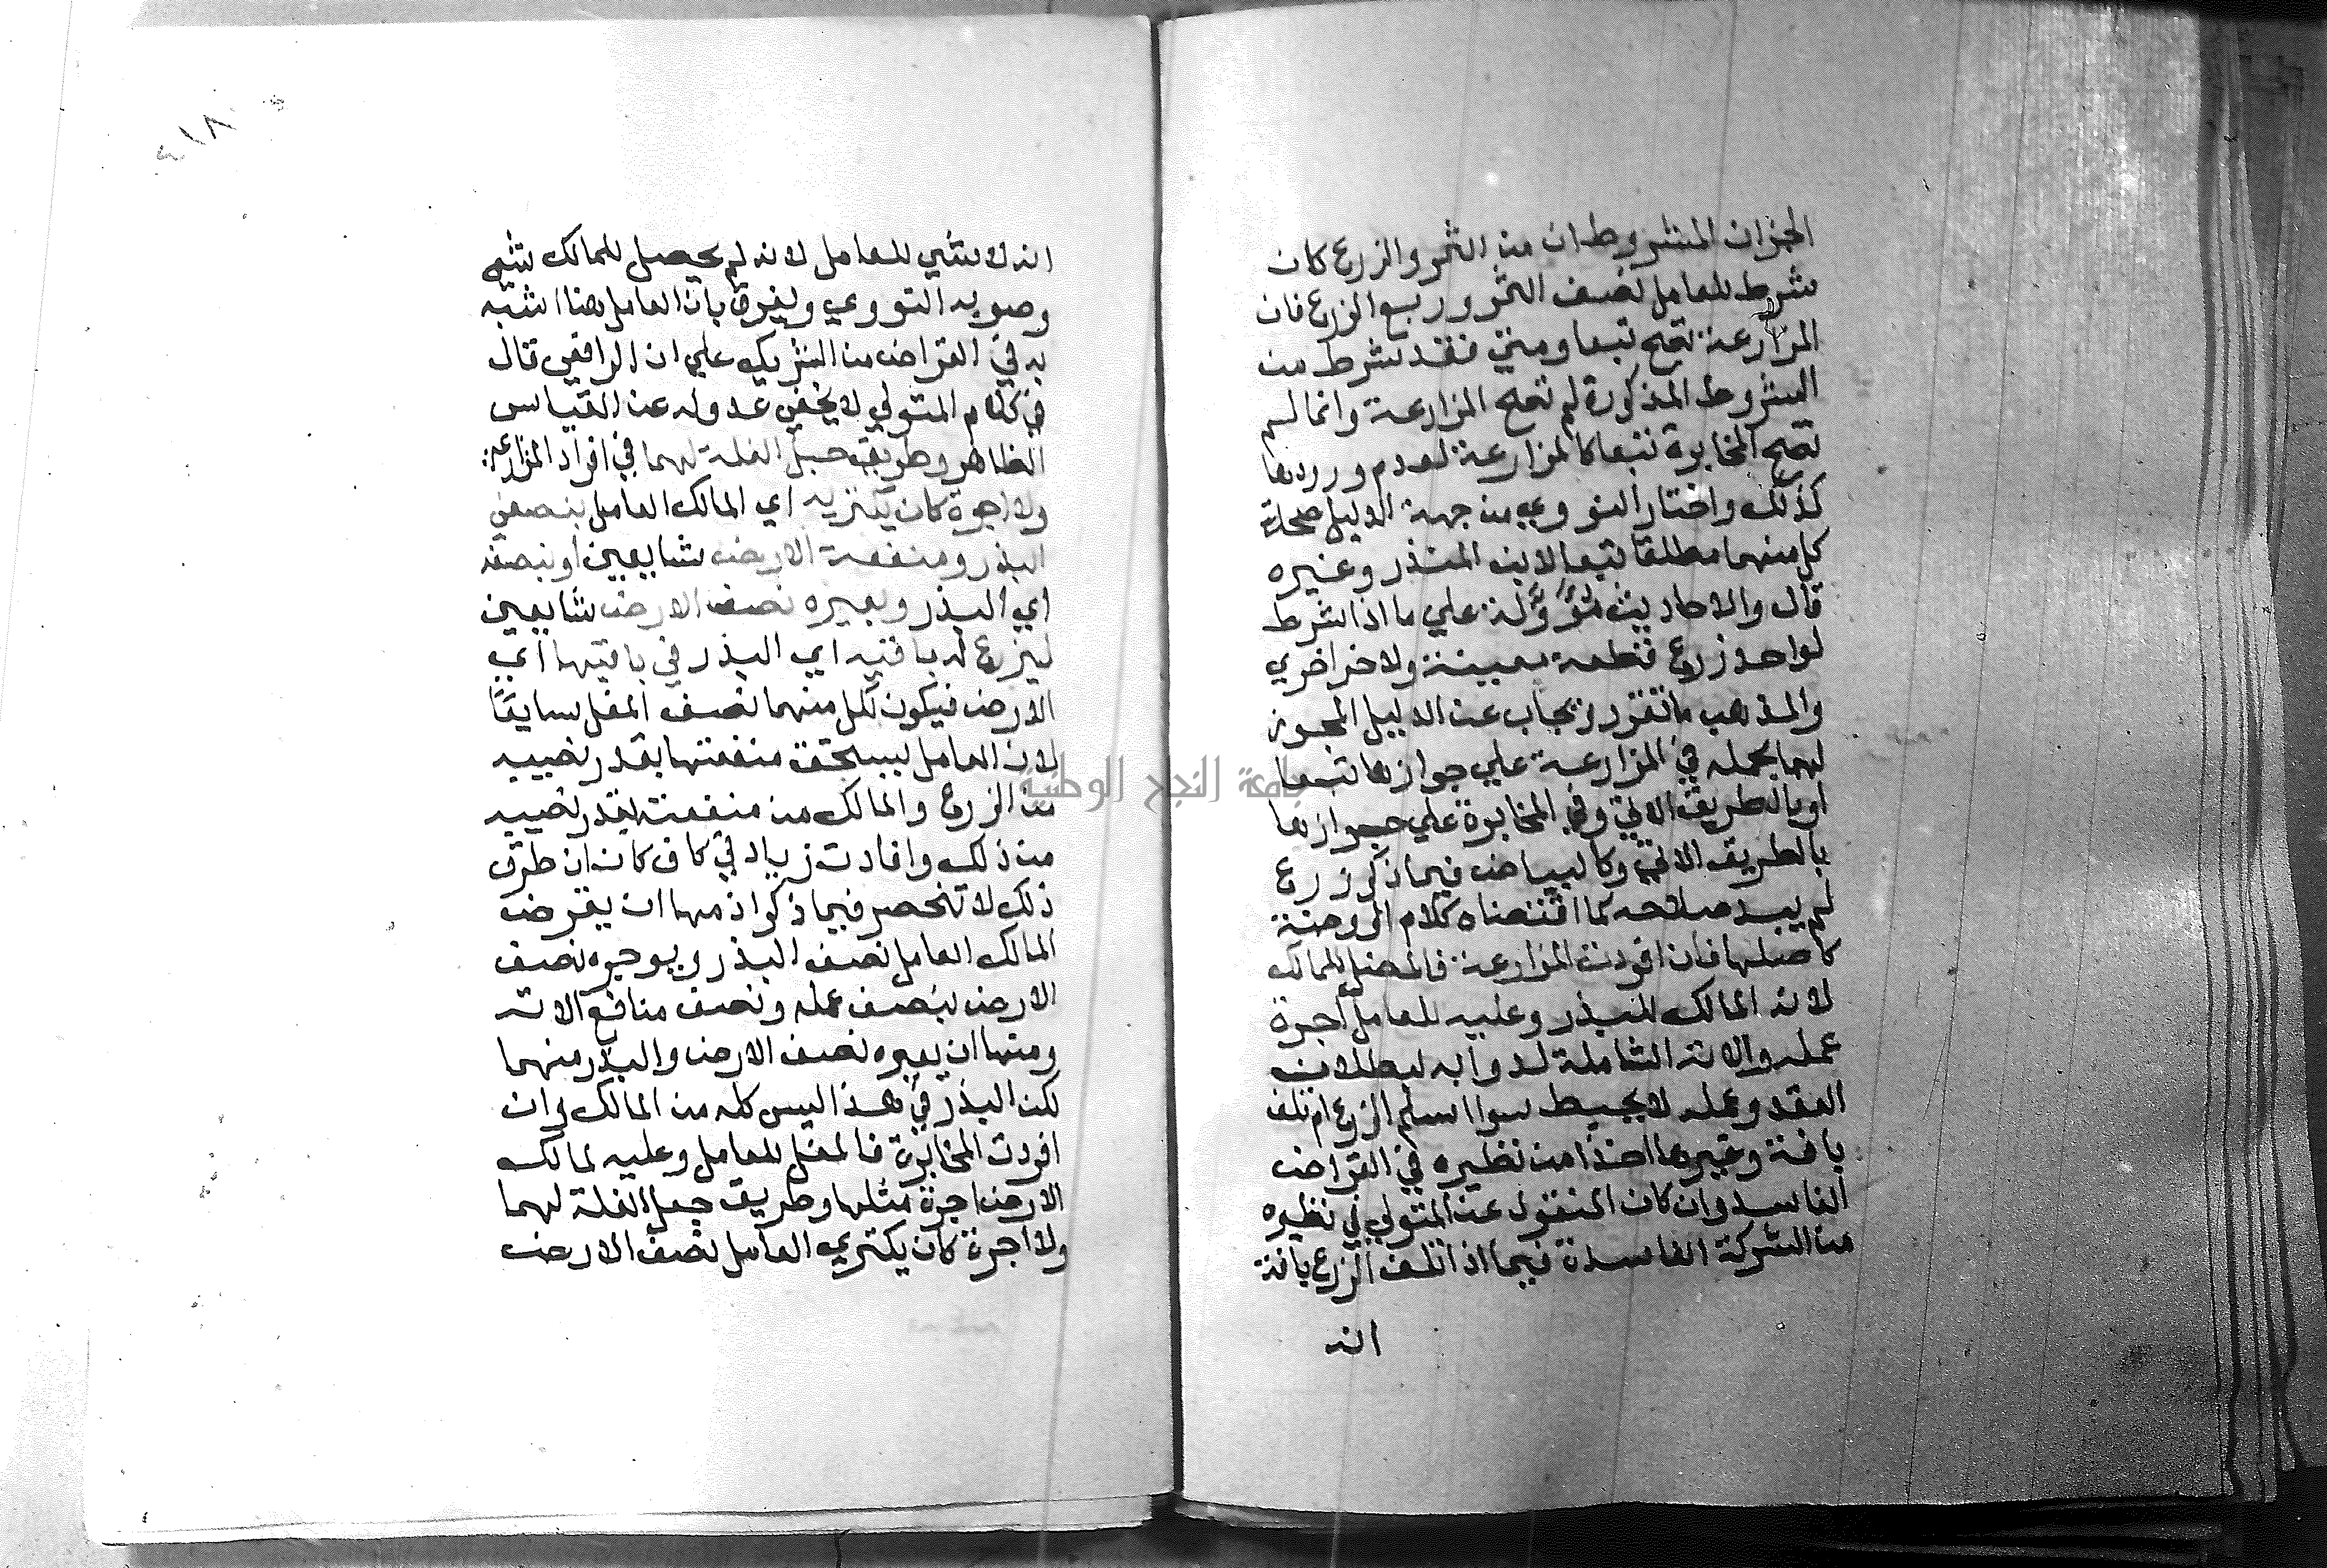 الجزان المشروطان من الثمر والزرع كان
شرط للعامل نصف الثمر وربع الزرع فان
المزارعة تصح تبعا ومتي فقد شرط من
الشروط المذكورة لم تصح المزارعة وانما لم
تصح المخابرة تبعا كالمزارعة لعدم ورودها
كذلك واختار النووي من جهة الدليل صحة
كل منهما مطلقا تبعا لابن المنذر وغيره
قال والاحاديث مؤولة علي ما اذا شرط
لواحد زرع قطعة معينة ولاخر اخري
والمذهب ما تقرر ويجاب عن الدليل المجوز
لهما بحمله في المزارعة علي جوازها تبعا
او بالطريق الاتي وفي المخابرة علي جوازها
بالطريق الاتي وكالبياض فيما ذكر زرع
لم يبد صلاحه كما اقتضاه كلام الروضة
كاصلها فان افردت المزارعة فالمغل للمالك
لانه المالك للبذر وعليه للعامل اجرة
عمله والاته الشاملة لدوابه لبطلان
العقد وعمله لا يحبط سوا اسلم الزرع ام تلف
بافة وغيرها اخذا من نظيره في القراض
الفاسد وان كان المنقول عن المتولي في نظيره
من الشركة الفاسدة فيما اذا تلف الزرع بافة
انه
٤١٨
انه لا شي للعامل لانه لم يحصل للمالك شي
وصوبه النووي ويفرق بان العامل هنا اشبه
به في القراض من الشريك علي ان الرافعي قال
في كلام المتولي لا يخفي عدوله عن القياس
الظاهر وطريق جعل الغلة لهما في افراد المزارعة
ولا اجرة كان يكتريه اي المالك العامل بنصفي
البذر ومنفعة الارض شايعين او بنصفه
اي البذر ويعيره نصف الارض شايعين
ليزرع له باقيه اي البذر في باقيها اي
الارض فيكون لكل منهما نصف المغل شايعا
لان العامل يستحق منفعتها بقدر نصيبه
من الزرع والمالك من منفعته بقدر نصيبه
من ذلك وافادت زيادتي كاف كان ان طرق
ذلك لا تنحصر فيما ذكر اذ منها ان يقرض
المالك العامل نصف البذر ويوجره نصف
الارض بنصف عمله ونصف منافع الاته
ومنها ان يعيره نصف الارض والبذر منهما
لكن البذر في هذا ليس كله من المالك وان
افردت المخابرة فالمغل للعامل وعليه لمالك
الارض اجرة مثلها وطريق جعل الغلة لهما
ولا اجرة كان يكتري العامل نصف الارض
جامعة النجاح الوطنية